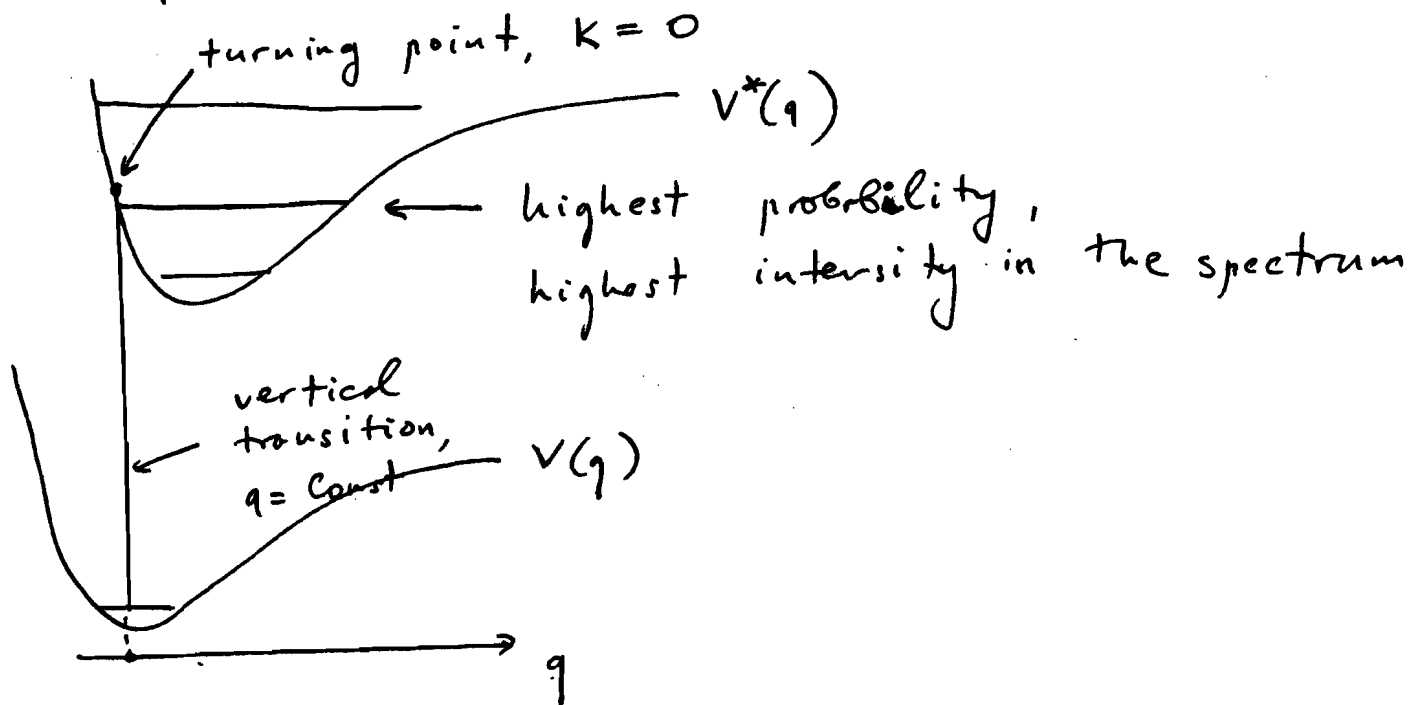 turning point, K = 0
V*(q)
highest probability,
highest intensity in the spectrum
vertical
transition,
q = Const
V(q)
q